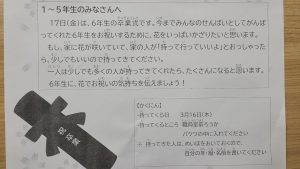 1～5年生のみなさんへ
17日(金)は、6年生の卒業式です。今までみなさんのせんぱいとしてがんば
ってくれた6年生をお祝いするために、花をいっぱいかざりたいと思います。
もし、家に花が咲いていて、家の人が「持って行っていいよ」とおっしゃった
ら、少しでもいいので持ってきてください。
一人は少しでも多くの人が持ってきてくれたら、たくさんになると思います。
6年生に、花でお祝いの気持ちを伝えましょう！
【かくにん】
・持ってくる日 3月16日(木)
・持ってくるところ 職員室前ろうか
バケツの中に入れてください
※ 持ってきた人は、めいぼをおいておくので、
自分の年・組・名前を書いてください
卒業証書